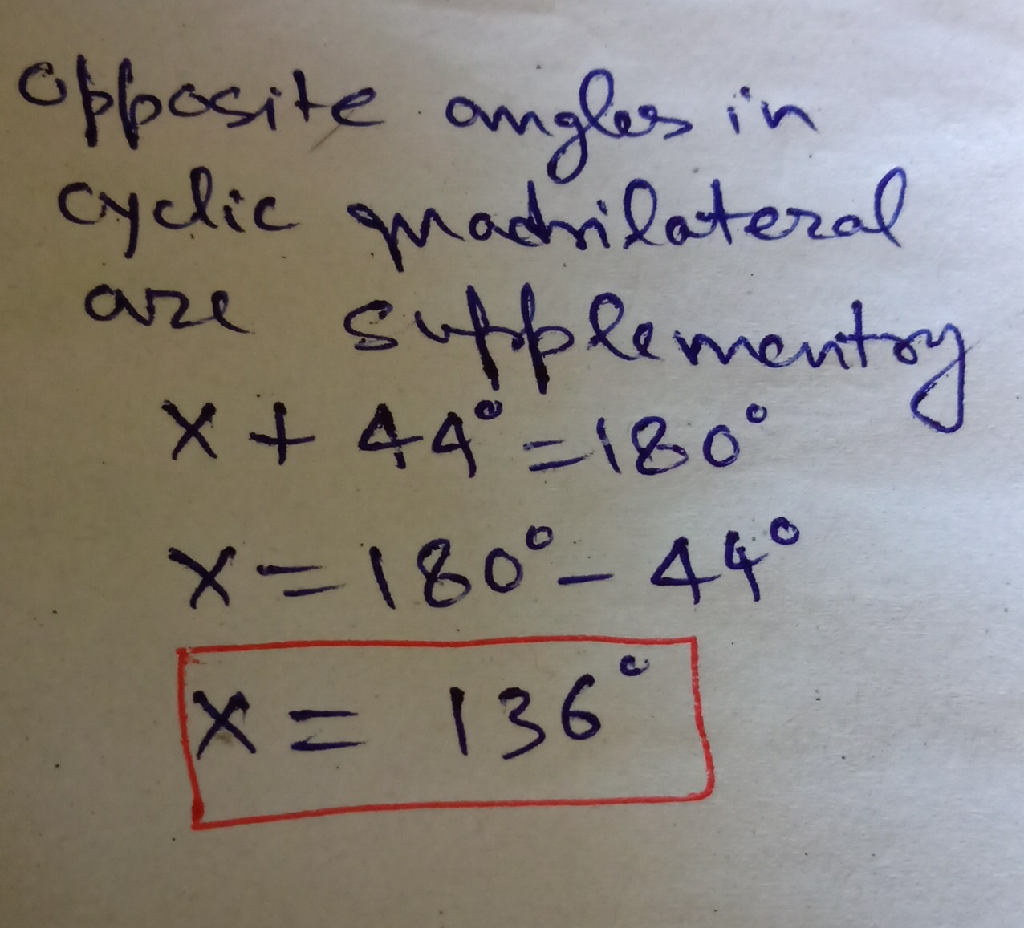 opposite angles in
cyclic quadrilateral
are supplementry
x + 44° = 180°
x = 180° - 44°
x = 136°